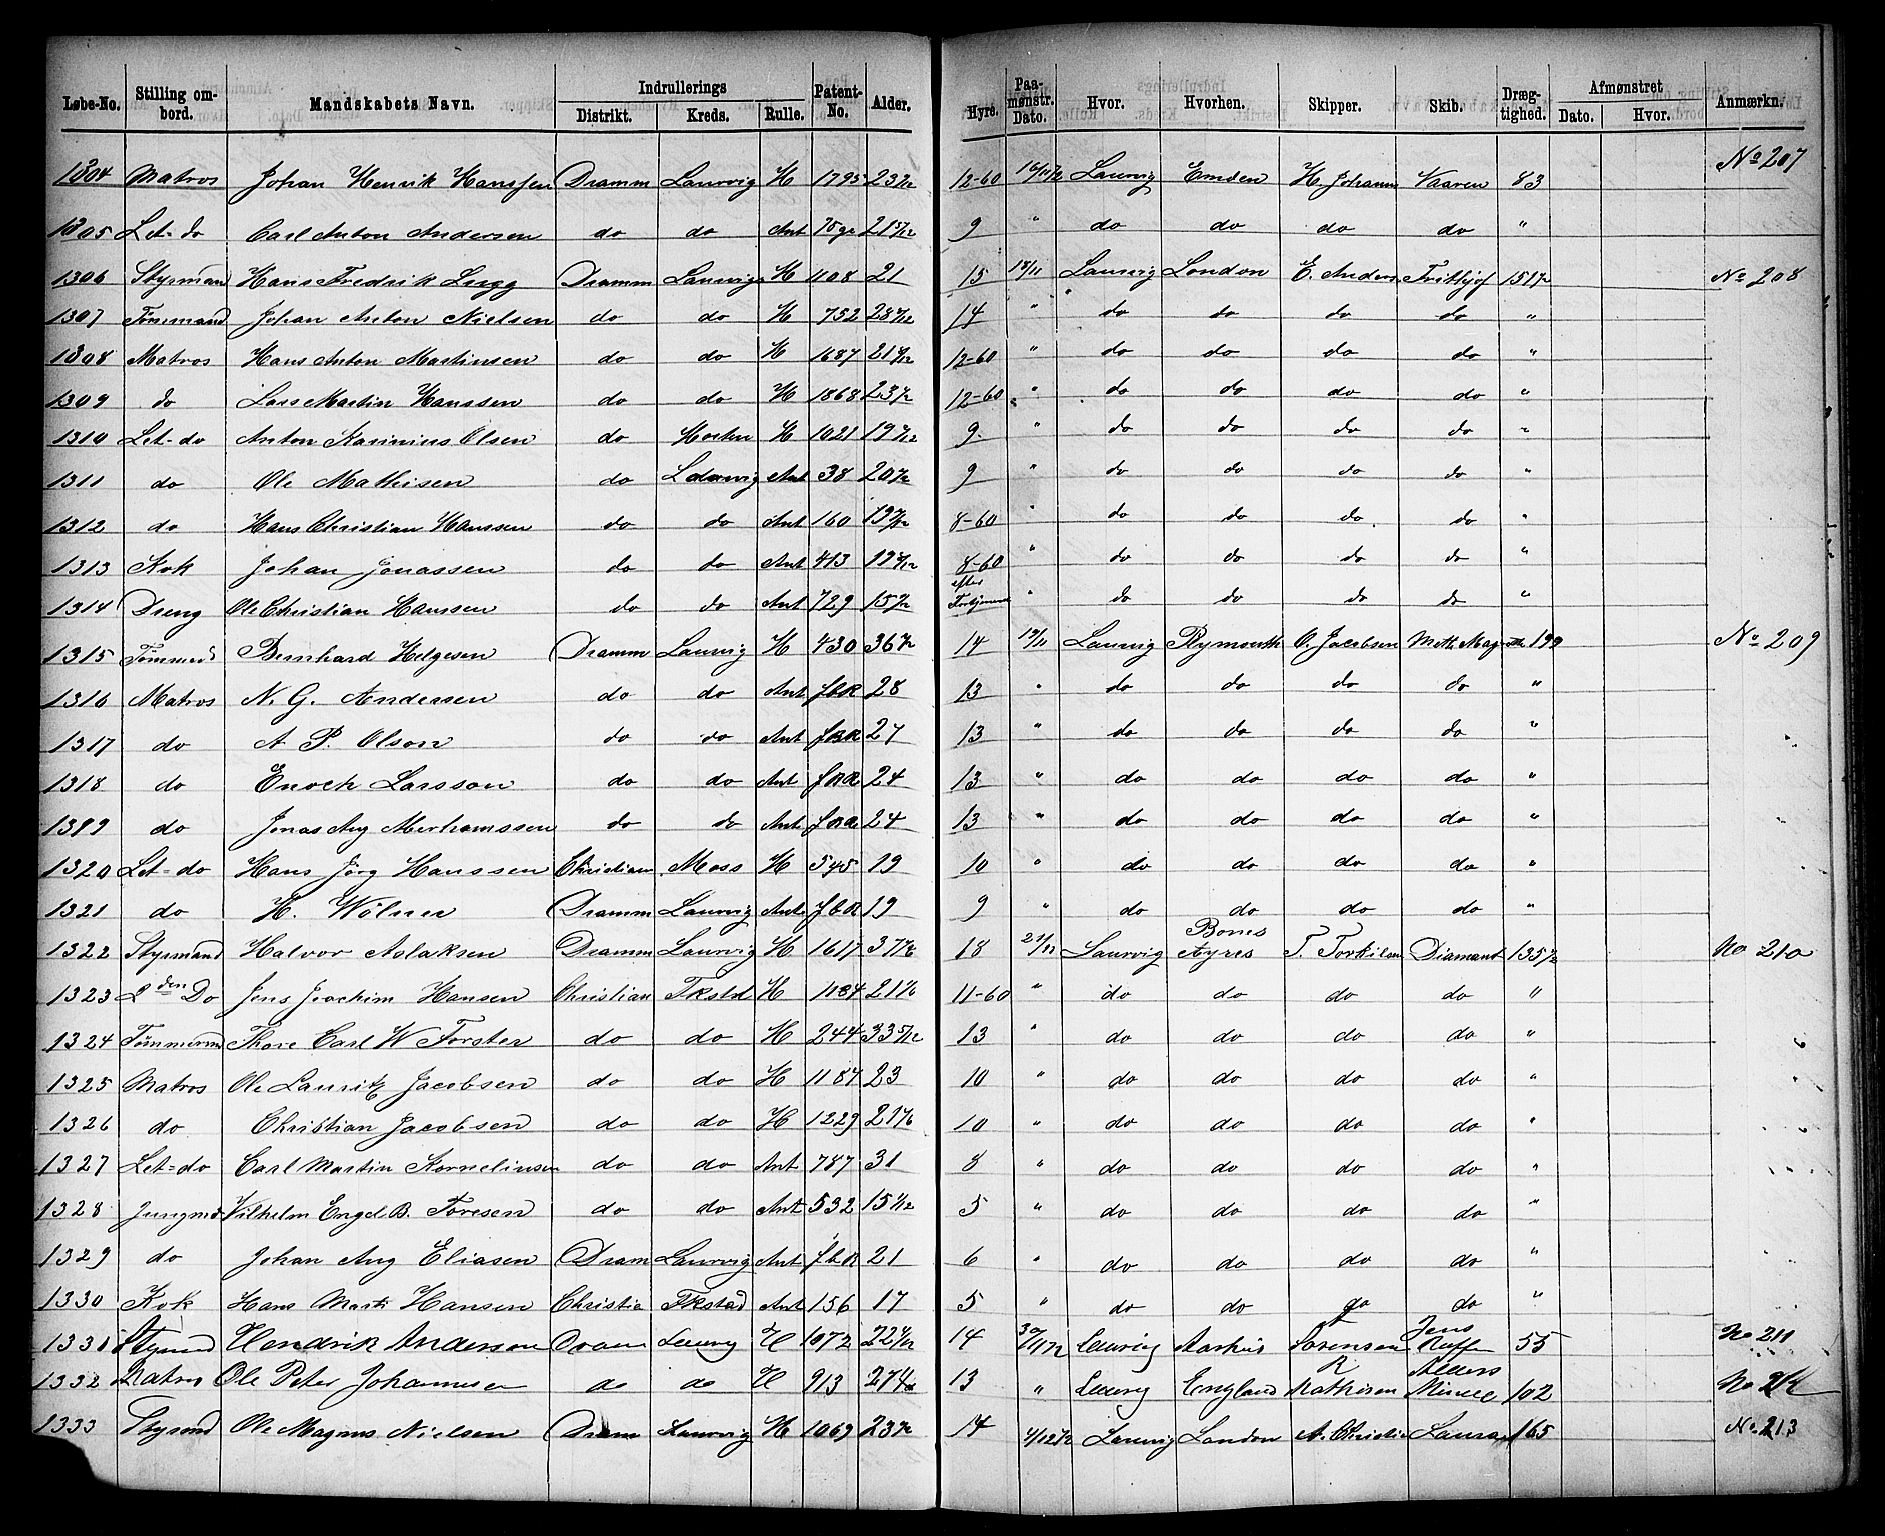 Løbe-No. Stilling ombord. Mandskabets Navn. Indrullerings Distrikt. Kreds. Rulle. Patent-No. Alder. Hyre. Paamønstr. Dato. Hvor. Hvorhen. Skipper. Skib. Drægtighed. Afmønstret Dato. Hvor. Anmærkn.
1304 Matros Johan Henrik Hanssen Dramm Laurvig H 1795 12-60 Laurvig Emden H. Johanns Vaaren 83 No 207
1305 Let-do Carl Anton Andersen do do Ant 9 " do do do do "
1306 Styrmand Hans Fredrik Lugg Dramm Laurvig H 1108 21 15 18/11 Laurvig London E. Anders Frithjof 151½ No 208
1307 Tømmand Johan Anton Nielsen do do H 752 14 " do do do do "
1308 Matros Hans Anton Martinsen do do H 1687 12-60 " do do do do "
1309 do Lars Martin Hanssen do do H 1868 23½ 12-60 " do do do do "
1310 Let-do Anton Karinius Olsen do Horten H 1021 9. " do do do do "
1311 do Ole Mathisen do Laurvig Ant 38 20½ 9 " do do do do "
1312 do Hans Christian Hanssen do do Ant 160 8-60 " do do do do "
1313 Kok Johan Jonassen do do Ant 413 8-60 " do do do do "
1314 Dreng Ole Christian Hanssen do do Ant 729 15½ efter Fortjeneste do do do do "
1315 Tømmerd Bernhard Helgesen Dramm Laurvig H 430 36½ 14 19/11 Laurvig Plymouth O. Jacobsen 199 No 209
1316 Matros N. G. Andersen do do Ant fbR 28 13 " do do do do "
1317 do A P. Olson do do Ant 27 13 " do do do do "
1318 do Enock Larsson do do Ant 24 13 " do do do do "
1319 do Jonas Aug Merhamssen do do Ant 24 13 " do do do do "
1320 Let-do Hans Jörg Hanssen Christian Moss H 595 19 10 " do do do do "
1321 do H. Wölner Dramm Laurvig Ant fbR 19 9 " do do do do "
1322 Styrmand Halvor Aslaksen Dramm Laurvig H 1617 18 21/11 Laurvig Bones Ayres T. Torkilsen Diamant 135½ No 210
1323 2den Do Jens Joachim Hansen Christian Fkstd H 1184 11-60 " do do do do "
1324 Tømmerm Thore Carl W Forster do do H 244 33 5/12 13 " do do do do "
1325 Matros Ole Lauritz Jacobsen do do H 1187 23 10 " do do do do "
1326 do Christian Jacobsen do do H 1229 10 " do do do do "
1327 Let-do Carl Martin Kornelinsen do do Ant 787 31 8 " do do do do "
1328 Jungmd Vilhelm Engel B. Toresen do do Ant 532 5 " do do do do "
1329 do Johan Aug Eliasen Dram Laurvig Ant fbR 21 6 " do do do do "
1330 Kok Hans Mart Hansen Christia Fkstad Ant 156 17 5 " do do do do "
1331 Styrmd Hendrik Anderson Dram Laurvig H 1072 14 30/11 72 Laurvig Aarhus Sorensen Jens 55 No 211
1332 Matros Ole Peter Johannesen do do H 913 13 " Laurvig England R Mathisen 102 No 212
1333 Styrmd Ole Magnus Nielsen Dram Laurvig H 1069 23½ 14 4/12 72 Laurvig London A. Christia Laura 165 No 213